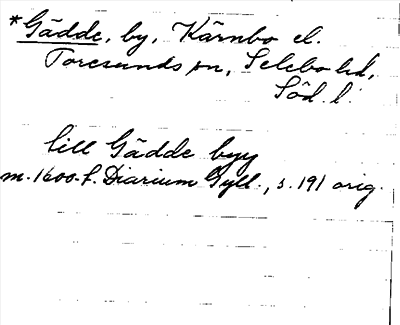 *Gädde, by, Kärnbo el.
Toresunds sn, Selebo hd,
Söd. l.
till Gädde byy
m. 1600-t. Diarium Gyll., s. 191 orig.